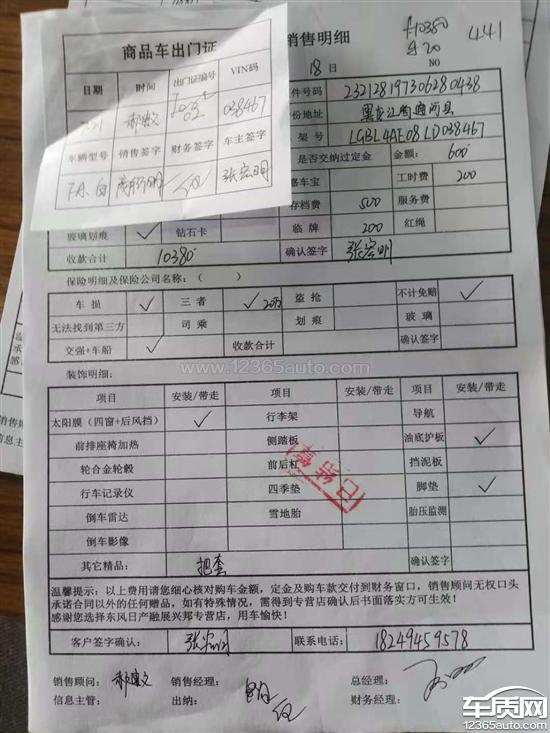 销售明细
f10380
20
441
商品车出门证
18日
NO
日期 时间 出门证编号 VIN码
件号码 232128197306280438
038467
份地址 黑龙江省通河县
架号 LGBL4AE08LD038467
车辆型号 销售签字 财务签字 车主签字
是否交纳过定金 金额: 600
张宏明
嘉车宝 工时费 200
存档费 500 服务费
玻璃划痕 ✓ 钻石卡 临牌 200 红绳
收款合计 10380 确认签字 张宏明
保险明细及保险公司名称:( )
车损 ✓ 三者 ✓ 200万 盗抢 不计免赔 ✓
无法找到第三方 司乘 划痕 玻璃
交强+车船 ✓ 收款合计 确认签字
www.12365auto.com
装饰明细:
项目 安装/带走 项目 安装/带走 项目 安装/带走
太阳膜(四窗+后风挡) ✓ 行李架 导航
前排座椅加热 侧踏板 油底护板 ✓
轮合金轮毂 前后杠 挡泥板
行车记录仪 四季垫 脚垫 ✓
倒车雷达 雪地胎 胎压监测
倒车影像
其它精品: 把套 确认签字
温馨提示:以上费用请您细心核对购车金额,定金及购车款交付到财务窗口,销售顾问无权口头
承诺合同以外的任何赠品,如有特殊情况,需得到专营店确认后书面落实方可生效!
感谢您选择东风日产融展兴邦专营店,用车愉快!
客户签字确认: 张宏明 联系电话: 18249459578
销售顾问: 销售经理: 总经理:
信息主管: 出纳: 财务经理:
车质网
12365auto.com